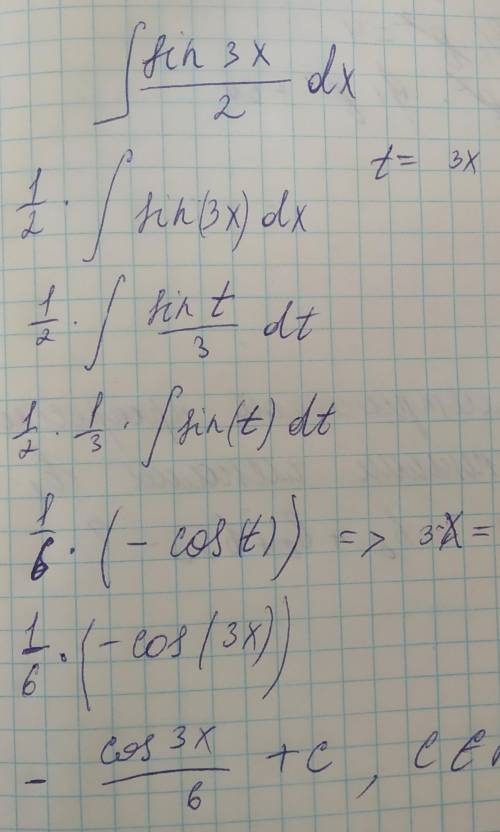 ∫ sin 3x / 2 dx
t = 3x
1/2 · ∫ sin(3x) dx
1/2 · ∫ sin t / 3 dt
1/2 · 1/3 · ∫ sin(t) dt
1/6 · (- cos(t)) => 3x =
1/6 · (-cos(3x))
- cos 3x / 6 + C , C ∈